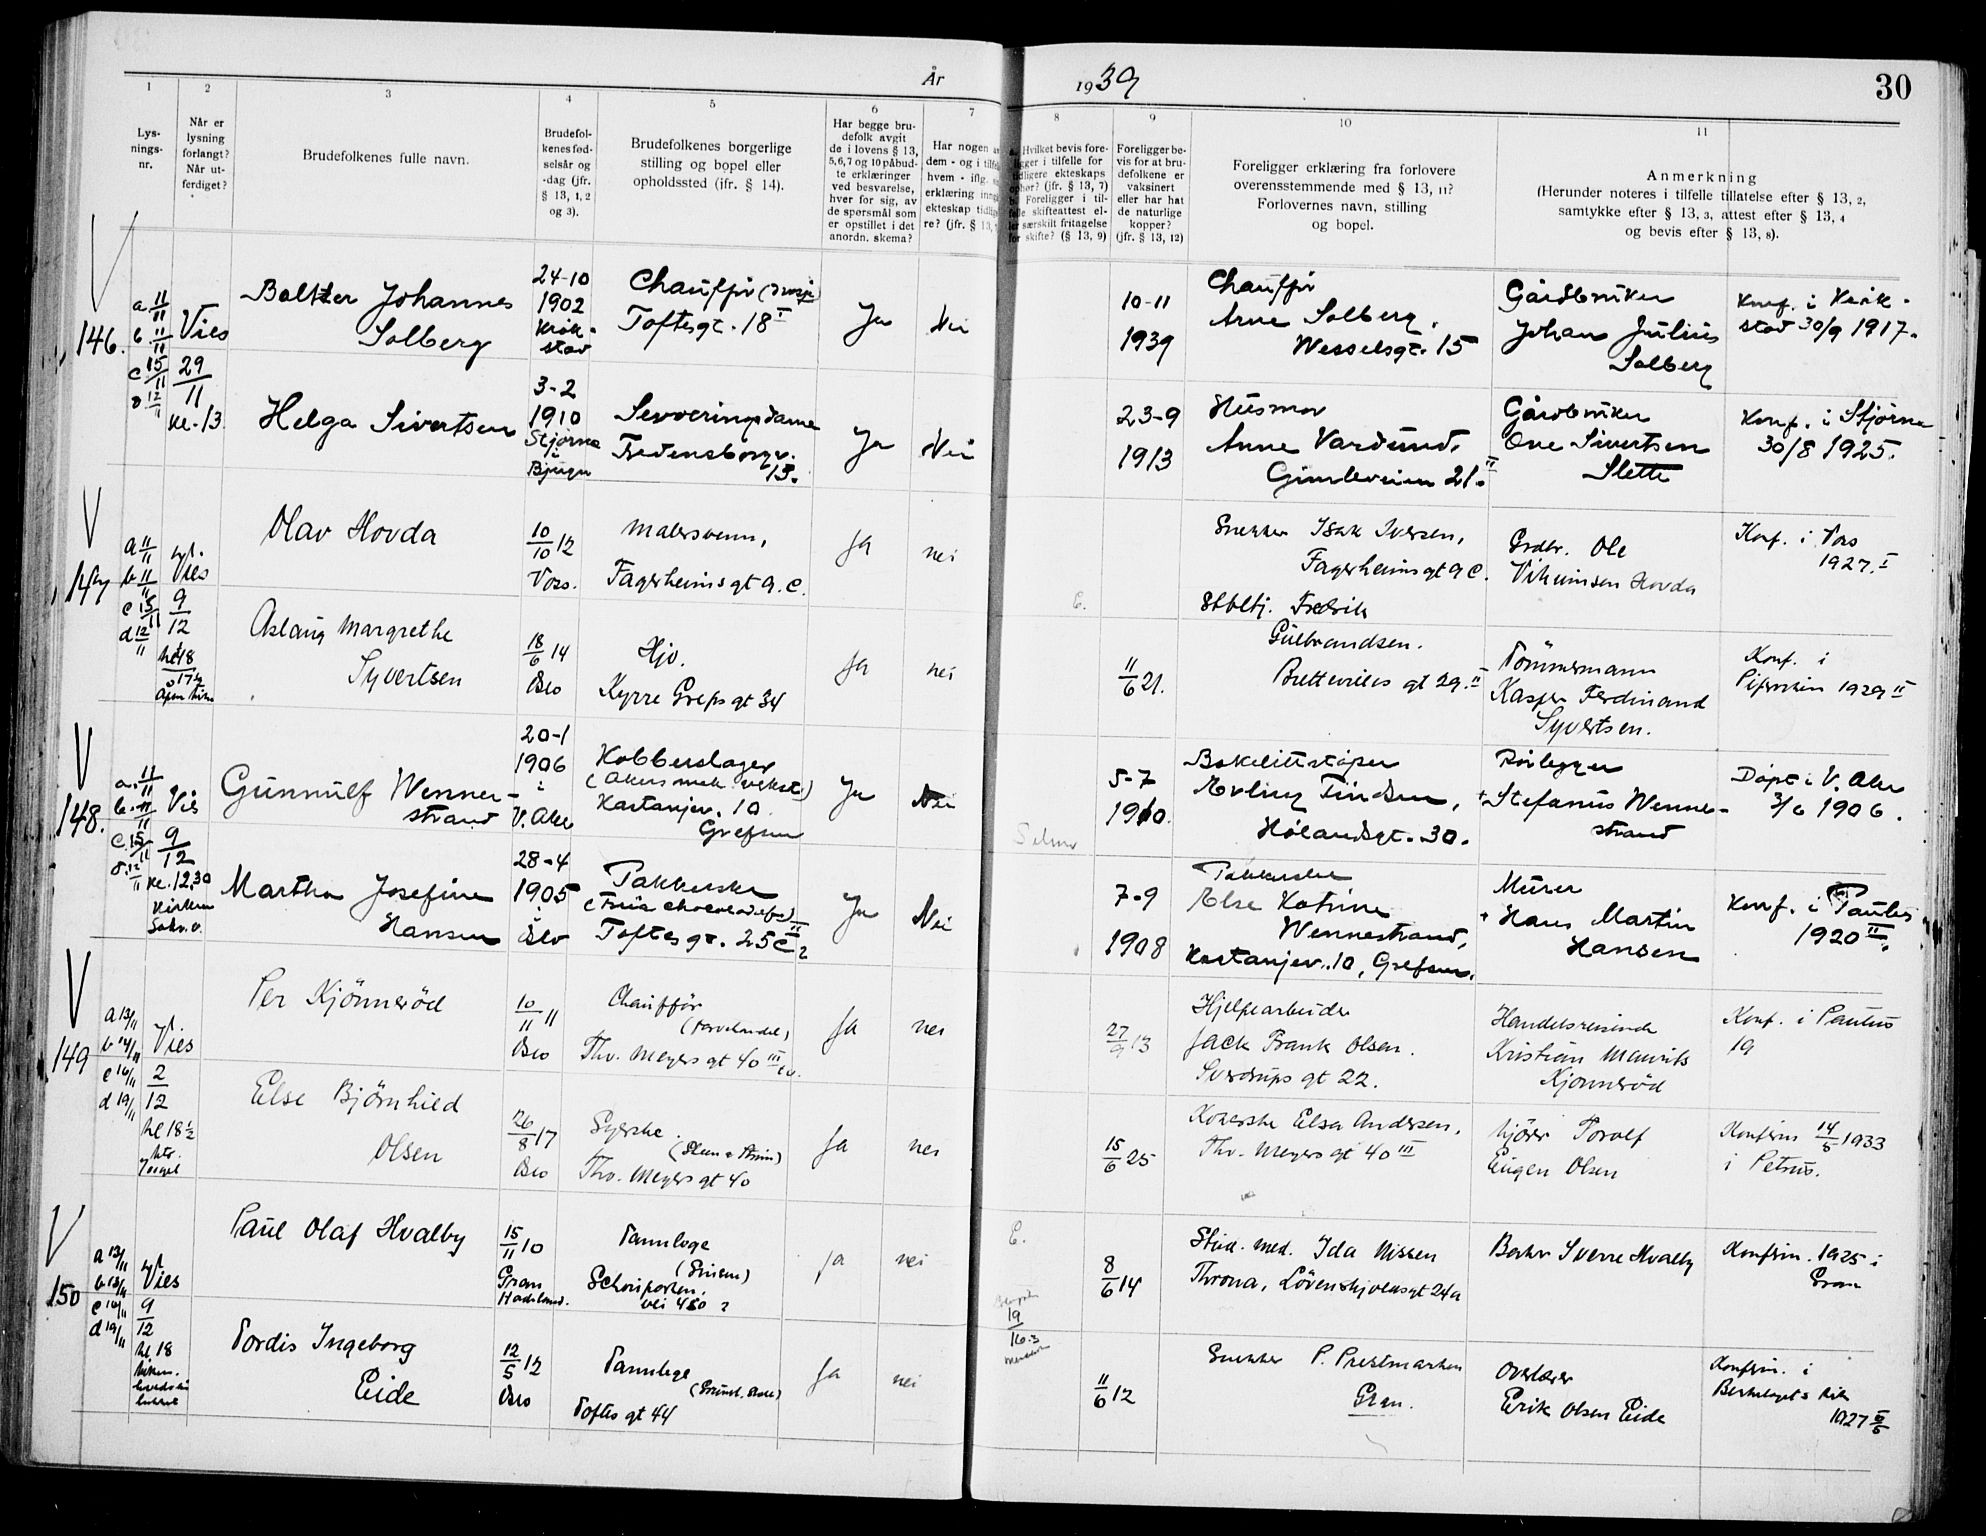 År 1939
30
1
2
3
4
5
6
7
8
9
10
11
Lys-
nings-
nr.
Når er
lysning
forlangt?
Når ut-
ferdiget?
Brudefolkenes fulle navn.
Brudefol-
kenes fød-
selsår og
-dag (jfr.
§ 13, 1, 2
og 3).
Brudefolkenes borgerlige
stilling og bopel eller
opholdssted (jfr. § 14).
Har begge bru-
defolk avgit
de i lovens § 13,
5,6,7 og 10 påbud-
te erklæringer
ved besvarelse,
hver for sig, av
de spørsmål som
er opstillet i det
anordn. skema?
Har nogen a
dem - og i tilfe
hvem - iflg.
erklæring inng
ekteskap tidlig
re? (jfr. § 13,
Hvilket bevis fore-
ligger i tilfelle for
tidligere ekteskaps
ophør? (jfr. § 13, 7)
b. Foreligger i til-
felle skifteattest el-
ler særskilt fritagelse
for skifte? (§ 13, 9)
Foreligger be-
vis for at bru-
defolkene er
vaksinert
eller har hat
de naturlige
kopper?
(jfr. § 13, 12)
Foreligger erklæring fra forlovere
overensstemmende med § 13, 11?
Forlovernes navn, stilling
og bopel.
Anmerkning
(Herunder noteres i tilfelle tillatelse efter § 13, 2,
samtykke efter § 13, 3, attest efter § 13, 4
og bevis efter § 13, 8).
146.
a 11/11
b. 11/11
c 15/11
d 12/11
Vies
29/11
kl. 13
Johannes
Solberg
24-10
1902
Kråk-
stad
Chauffør
Toftesgt. 18 I
Ja
Nei
10-11
1939
Chauffør
Arne Solberg,
Wesselsgt. 15
Gårdbruker
Johan Julius
Solberg
Konf. i Kråk-
stad 30/9 1917.
Helga Sivertsen
3-2
1910
Stjørna
i
Bjugn
Serveringsdame
Fredensborgv.
13.
Ja
Nei
23-9
1913
Husmor
Anne Vardund,
21. II
Gårdbruker
Ove Sivertsen
Slette
Konf. i Stjørna
30/8 1925.
147
a 11/11
b 11/11
c 15/11
d 12/11
Vies
9/12
Olav Hovda
10/10 12
Voss.
Malersvenn,
Fagerheimsgt 9. C.
Ja
nei
Snekker Isak Iversen,
Fagerheimsgt 9 C.
Grdbr. Ole
Hovda
Konf. i Voss
1927. I
Aslaug Margrethe
Syvertsen
18/6 14
Oslo
Hjv.
Kyrre Greps gt 34
Ja
nei
11/6 21.
Fredrik
Gulbrandsen.
gt 29. II
Tømmermann
Kasper Ferdinand
Syvertsen.
Konf. i
1929 II
148.
a. 11/11
b. 11/11
c. 15/11
d. 12/11
Vies
9/12
kl. 12.30
Gunnulf Wenne-
strand
20-1
1906
i
V. Aker
Kobberslager
(Akers mek. verkst.)
Kastanjev. 10
Grefsen
Ja
Nei
5-7
1910.
Bakelittstøper
Erling Findsen,
Hølandsgt. 30.
Rørlegger
Stefanus Wenne-
strand
Døpt i V. Aker
3/6 1906.
Martha Josefine
Hansen
28-4
1905
Oslo
Pakkerske
(Freia chocoladefb.)
Toftes gt. 25 C II
Ja
Nei
7-9
1908
Pakkerske
Else Katrine
Wennestrand,
Kastanjev. 10, Grefsen.
Murer
Hans Martin
Hansen
Konf. i Paulus
1920 II.
149
a 13/11
b 14/11
c 16/11
d 19/11
Vies
2/12
kl 18 1/2
Per Kjønnerød
10/11 11
Oslo
Chauffør
(Farvehandel)
Thv. Meyers gt 40 III
Ja
nei
27/9 13
Hjelpearbeider
Jack Frank Olsen.
Sverdrups gt 22.
Handelsreisende
Kristian Mauritz
Kjønnerød
Konf. i Paulus
19
Else Bjørnhild
Olsen
26/8 17
Oslo
Syerske.
(Steen & Strøm)
Thv. Meyers gt 40
Ja
nei
15/6 25
Kokerske Elsa Andersen,
Thv. Meyers gt 40 III
Kjører Torolf
Eugen Olsen
Konfirm 14/5 1933
i Petrus.
150
a 13/11
b 13/11
c 16/11
d 19/11
Vies
9/12
kl. 18
Paul Olaf Hvalby
15/11 10
Gran
Hadeland.
Tannlege
vei
Ja
nei
8/6 14
Stud. med. Ida Nissen
Throna, Løvenskjoldsgt 24a
Baker Sverre Hvalby
Konfirm. 1925 i
Gran
Tordis Ingeborg
Eide
12/5 12
Oslo
Tannlege
Toftes gt 44
Ja
nei
11/6 12
Snekker P. Prestmarken
Gran.
Overlærer
Erik Olsen Eide
Konfirm. i
1927